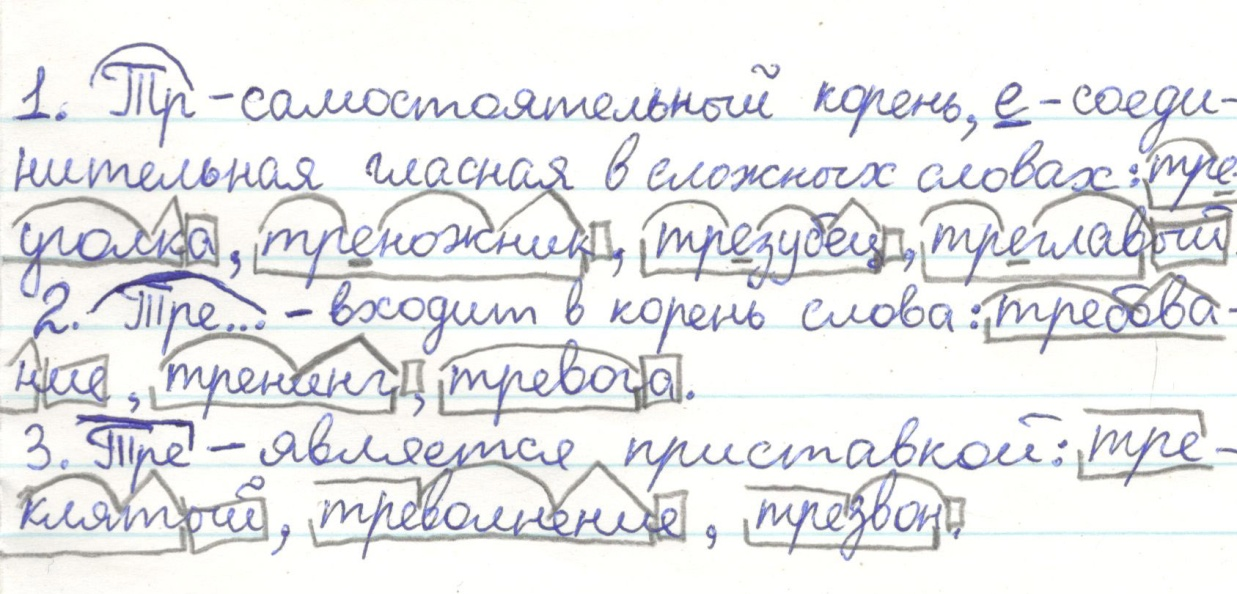 1. Тр - самостоятельный корень, е - соеди-
нительная гласная в сложных словах: тре
уголка, треножник, трезубец, треглавый
2. Тре... - входит в корень слова: требова-
ние, тренинг, тревога.
3. Тре - является приставкой: тре-
клятый, треволнение, трезвон.